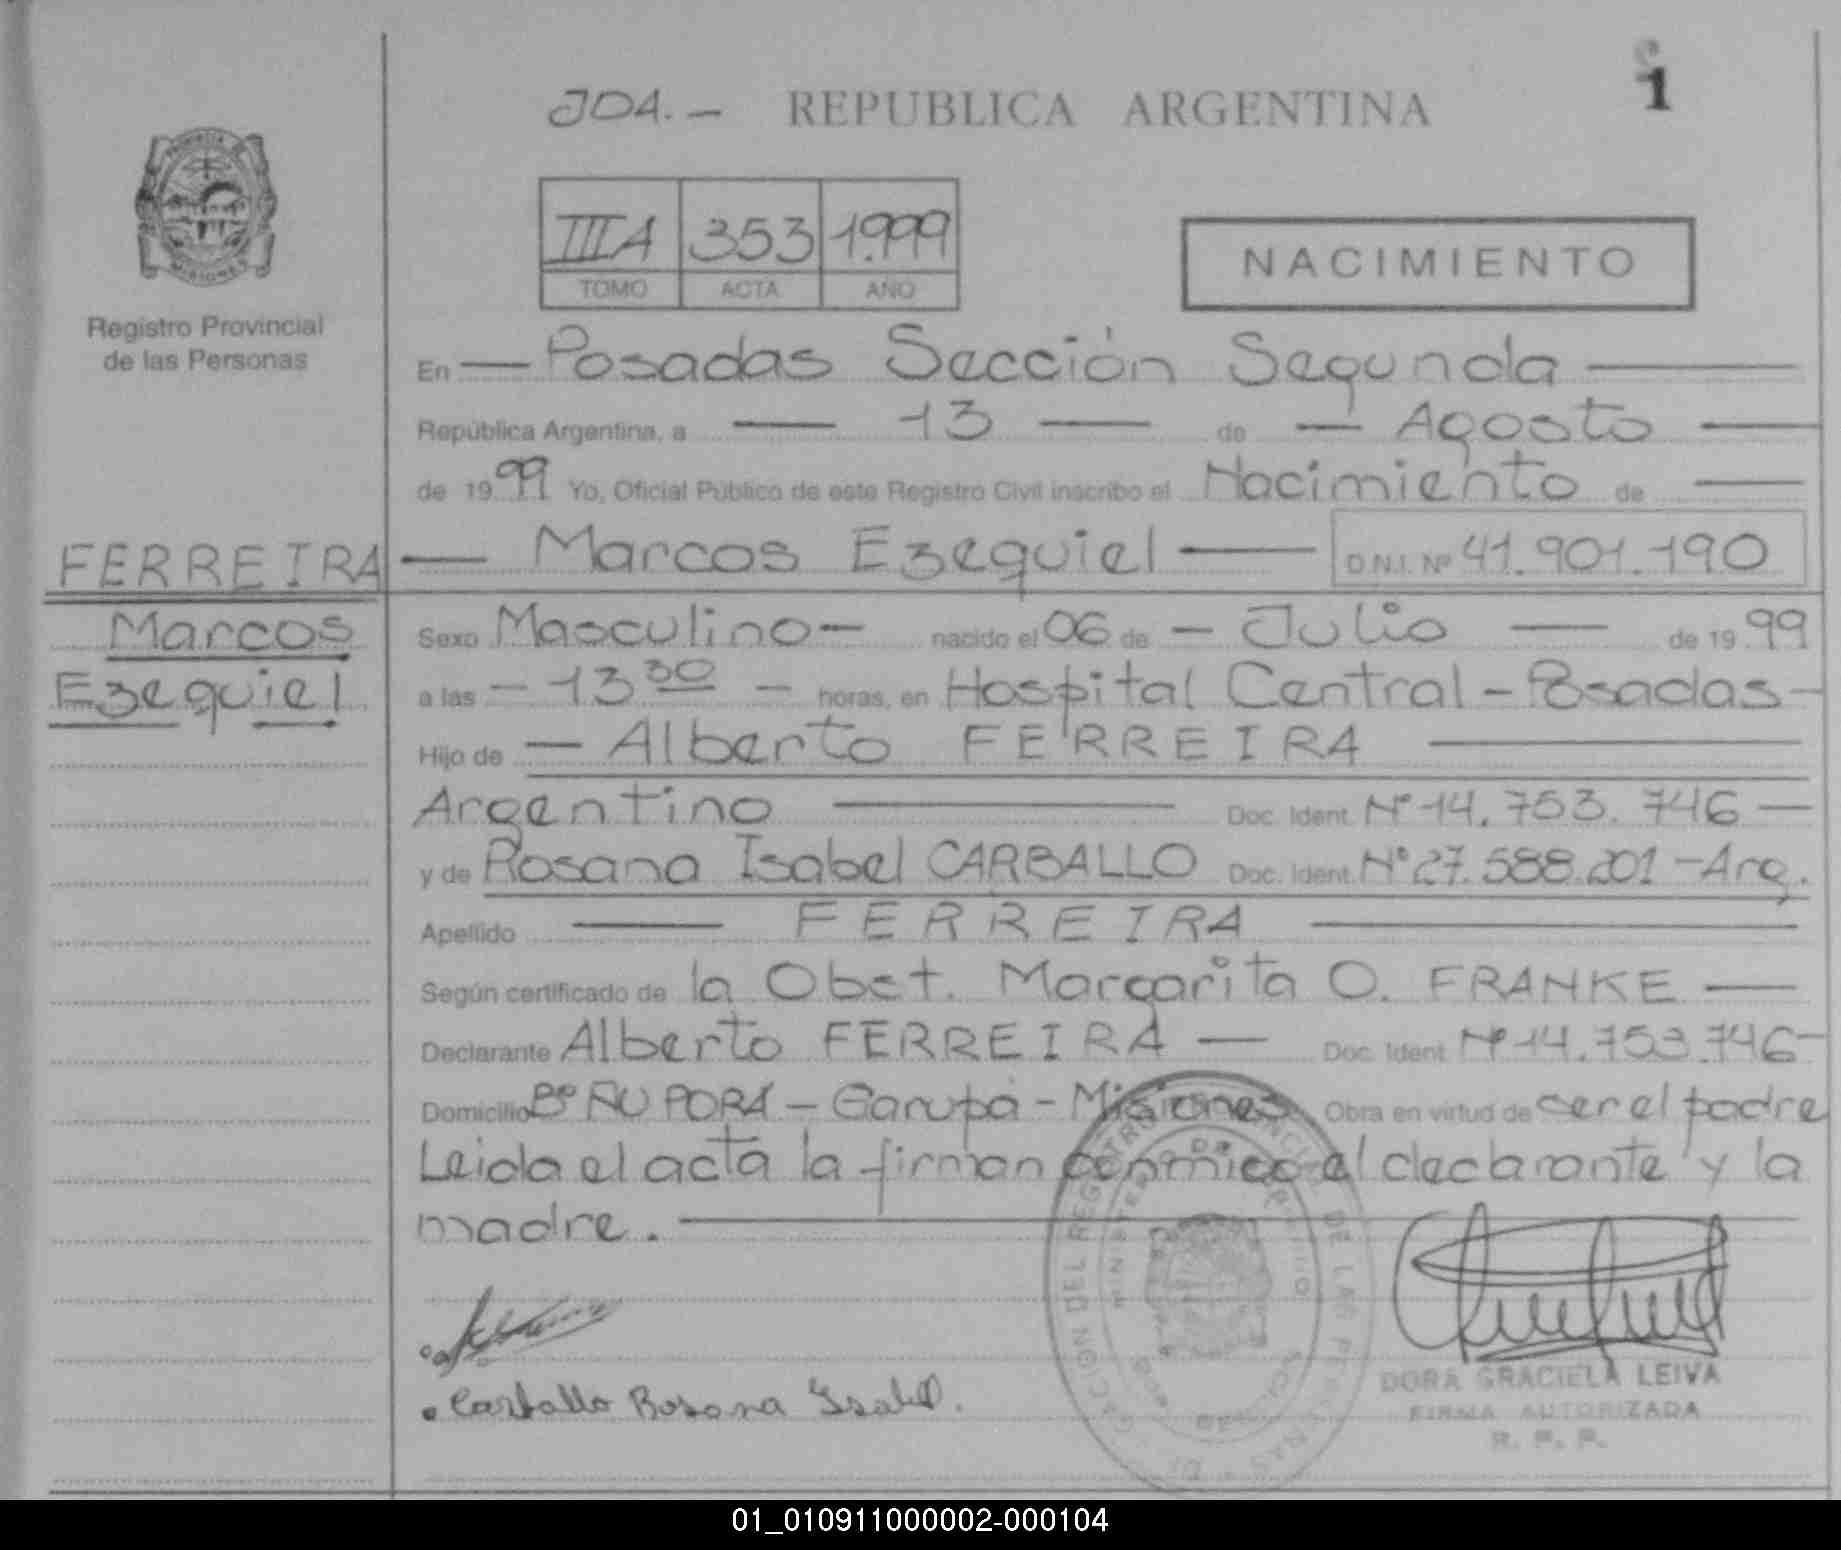 104.- REPUBLICA ARGENTINA
1
PROVINCIA DE MISIONES
Registro Provincial
de las Personas
IIIA 353 1.999
TOMO ACTA AÑO
NACIMIENTO
En — Posadas Sección Segunda —
República Argentina, a — 13 — de — Agosto —
de 1999 Yo, Oficial Público de este Registro Civil inscribo el Nacimiento de —
FERREIRA — Marcos Ezequiel — D.N.I. Nº 41.901.190
Marcos
Ezequiel
Sexo Masculino — nacido el 06 de — Julio — de 1999
a las — 13 30 — horas, en Hospital Central - Posadas -
Hijo de — Alberto FERREIRA —
Argentino — Doc. Ident. Nº 14.753.746 —
y de Rosana Isabel CARBALLO Doc. Ident. Nº 27.588.201 - Arg.
Apellido — FERREIRA —
Según certificado de la Obst. Margarita O. FRANKE —
Declarante Alberto FERREIRA — Doc. Ident. Nº 14.753.746 -
Domicilio Bº ÑU PORA - Garupá - Misiones Obra en virtud de ser el padre
Leida el acta la firman conmigo el declarante y la
madre. —
Carballo Rosana Isabel.
DORA GRACIELA LEIVA
FIRMA AUTORIZADA
R. P. P.
01_010911000002-000104